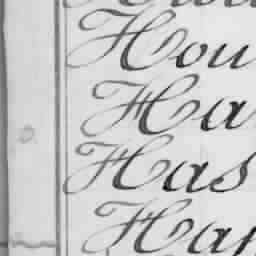 Hou
Ha
Has
Hap